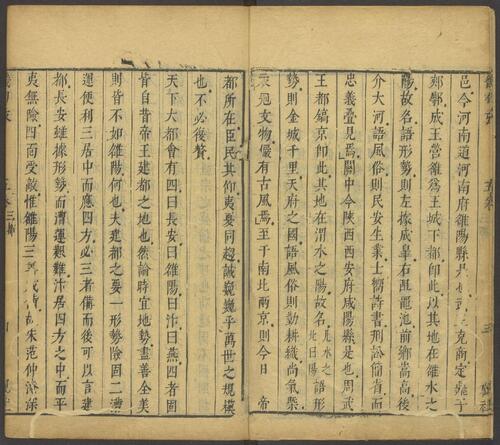 邑今河南道河南府雒陽縣是也
郟鄏成王營雒爲王城下都卽此以其地在雒水之
陽故名語形勢則左據成皋右阻澠池前嚮嵩高後
介大河語風俗則民安生業士嚮詩書刑訟簡肯而
忠義疊見焉關中今陝西西安府咸陽縣是也周武
王都鎬京卽此其地在渭水之陽故名凡水之北曰陽語形
勢則金城千里天府之國語風俗則勤耕織尚氣槩
衣冠文物儼有古風焉至于南北兩京則今日 帝
都所在臣民其仰夷夏同趨誠巍巍乎萬世之規模
也不必復贅
天下大都會有四曰長安曰雒陽曰汴曰燕四者固
皆自昔帝王建都之地也然論時宜地勢盡善全美
則皆不如雒陽何也夫建都之要一形勢險固二漕
運便利三居中而應四方必三者備而後可以言建
都長安雖據形勢而漕運艱難汴居四方之中而平
夷無險四面受敵惟雒陽三
宋范仲淹